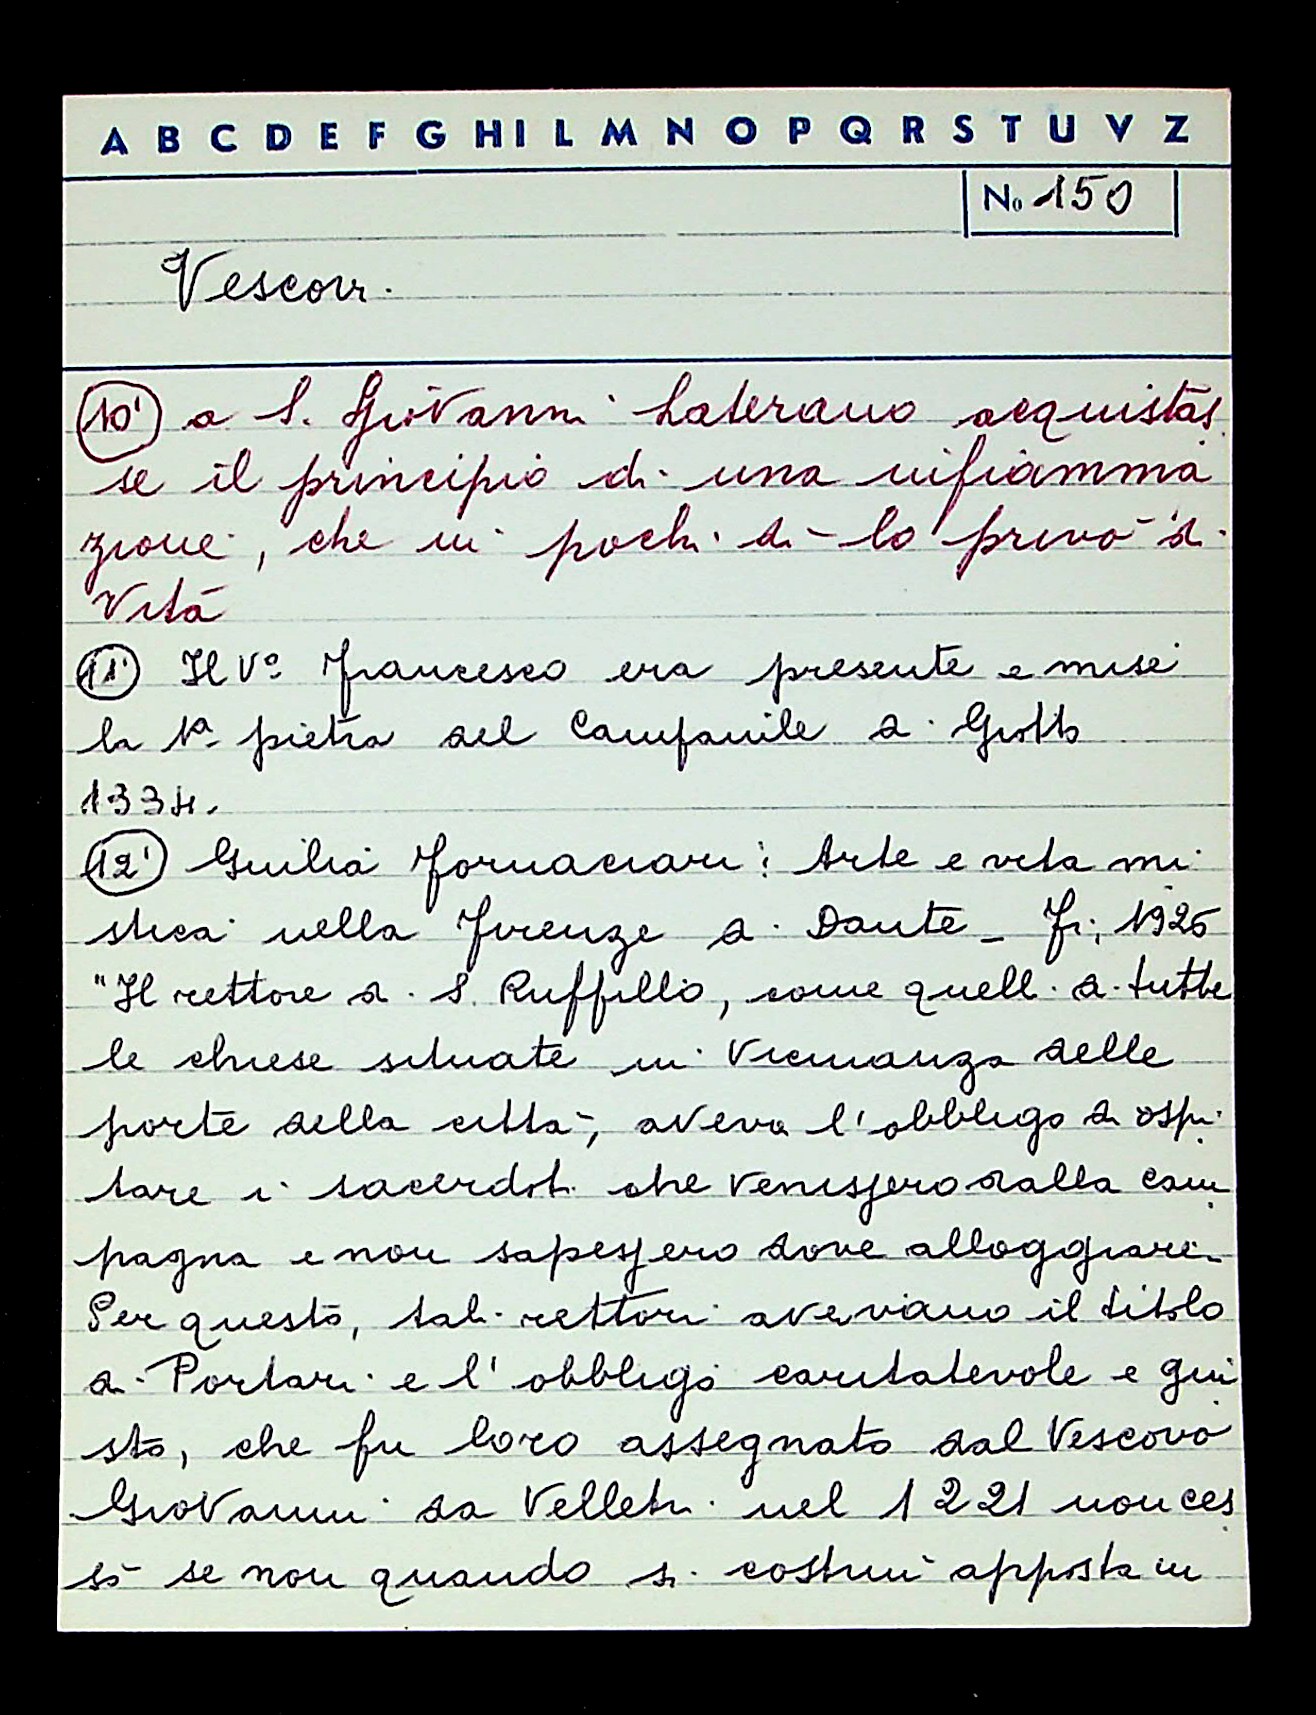 A B C D E F G H I L M N O P Q R S T U V Z
No 150
Vescovi.
10' a S. Giovanni Laterano acquistas
se il principio di una infiamma
zione, che in pochi dì lo privò di
vita
11' Il Vº Francesco era presente e mise
la 1ª pietra del Campanile di Giotto
1334.
12' Guilia Fornaciari: Arte e vita mi
stica nella Firenze di Dante - Fi, 1925
"Il rettore di S. Ruffillo, come quelli di tutte
le chiese situate in vicinanza delle
porte della città, aveva l'obbligo di ospi
tare i sacerdoti che venissero dalla cam
pagna e non sapessero dove alloggiare.
Per questo, tali rettori avevano il titolo
di Portari e l'obbligo caritatevole e giu
sto, che fu loro assegnato dal Vescovo
Giovanni da Velletri nel 1221 non ces
sò se non quando si costruì apposta in